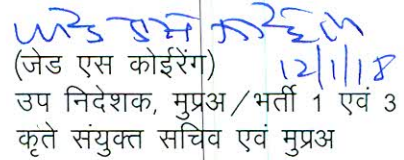 12/1/18
(जेड एस कोईरेंग)
उप निदेशक, मुप्रअ/भर्ती 1 एवं 3
कृते संयुक्त सचिव एवं मुप्रअ